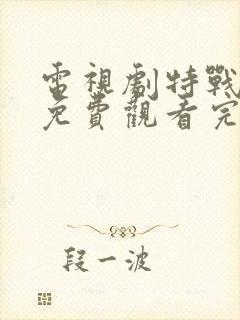 電視劇特戰
免費觀看完
段一波